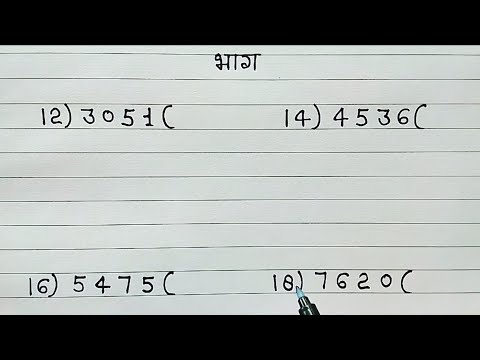 भाग
12) 3051(
14) 4536(
16) 5475(
18) 7620(